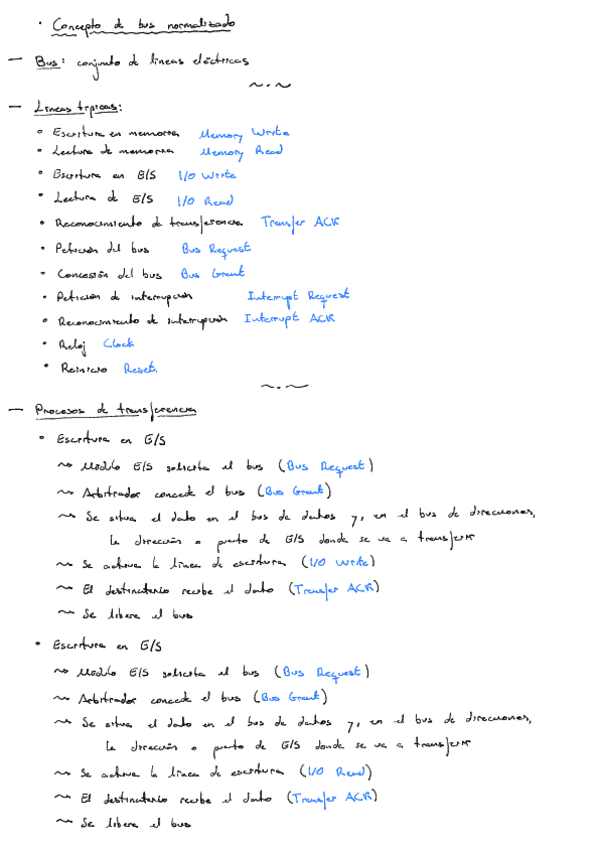 · Concepto de bus normalizado
— Bus: conjunto de líneas eléctricas
— Líneas típicas:
• Escritura en memoria Memory Write
• Lectura de memoria Memory Read
• Escritura en E/S I/O Write
• Lectura de E/S I/O Read
• Reconocimiento de transferencia Transfer ACK
• Petición del bus Bus Request
• Concesión del bus Bus Grant
• Petición de interrupción Interrupt Request
• Reconocimiento de interrupción Interrupt ACK
• Reloj Clock
• Reinicio Reset
— Procesos de transferencia
• Escritura en E/S
~> Módulo E/S solicita el bus (Bus Request)
~> Arbitrador concede el bus (Bus Grant)
~> Se situa el dato en el bus de datos y, en el bus de direcciones,
la dirección o puerto de E/S donde se va a transferir
~> Se activa la línea de escritura (I/O Write)
~> El destinatario recibe el dato (Transfer ACK)
~> Se libera el bus
• Escritura en E/S
~> Módulo E/S solicita el bus (Bus Request)
~> Arbitrador concede el bus (Bus Grant)
~> Se situa el dato en el bus de datos y, en el bus de direcciones,
la dirección o puerto de E/S donde se va a transferir
~> Se activa la línea de escritura (I/O Read)
~> El destinatario recibe el dato (Transfer ACK)
~> Se libera el bus